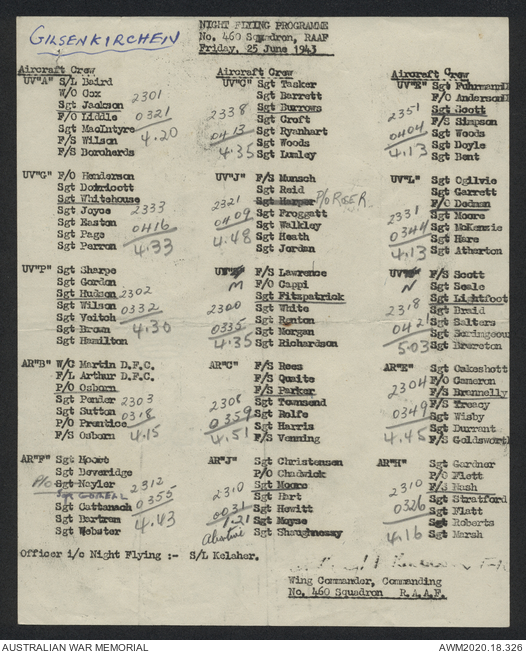 GILSENKIRCHEN
NIGHT FLYING PROGRAMME
No. 460 Squadron, RAAF
Friday, 25 June 1943
Aircraft Crew
UV"A" S/L Baird
W/O Cox
Sgt Jackson 2301
F/O Liddle 0321
Sgt MacIntyre
F/S Wilson 4.20
F/S Boroherds
Aircraft Crew
UV"C" Sgt Tasker
Sgt Barrett
Sgt Burrows 2338
Sgt Croft
Sgt Rynehart 0413
Sgt Woods
Sgt Lumley 4.35
Aircraft Crew
UV"E" Sgt
F/O
Sgt Scott 2351
F/S Simpson
Sgt Woods 0404
Sgt Doyle
Sgt Bent 4.13
UV"G" F/O Henderson
Sgt
Sgt Whitehouse
Sgt Joyce 2333
Sgt Easton 0416
Sgt Page
Sgt Perron 4.33
UV"J" F/S Munsch
Sgt Reid
Sgt Harper 2321
Sgt Froggatt 0409
Sgt Walkley
Sgt Heath 4.48
Sgt Jordan
UV"L" Sgt Ogilvie
Sgt Garrett
F/O Dedman
Sgt Moore 2331
Sgt McKenzie 0344
Sgt Hare
Sgt Atherton 4.13
UV"P" Sgt Sharpe
Sgt Gordon
Sgt Hudson 2302
Sgt Wilson 0332
Sgt Veitch
Sgt Brown 4.30
Sgt Hamilton
M F/S Lawrence
F/O Cappi
Sgt Fitzpatrick
Sgt White 2300
Sgt Renton 0335
Sgt Morgan
Sgt Richardson 4.35
N F/S Scott
Sgt Seale
Sgt Lightfoot
Sgt Draid 2318
Sgt Salters 0421
Sgt
Sgt Brereton 5.03
AR"B" W/C Martin D.F.C.
F/L Arthur D.F.C.
P/O Osborn
Sgt Pender 2303
Sgt Sutton 0318
P/O Prentice
F/S Osborn 4.15
AR"C" F/S Rees
F/S Quaite
F/S Parker
Sgt Townsend 2308
Sgt Rolfe 0359
Sgt Harris
F/S Venning 4.51
AR"E" Sgt Oakeshott
F/O Cameron
F/S Brennelly 2304
F/S Treacy
Sgt Wisby 0349
Sgt Durrant
F/S Goldsworth 4.45
AR"F" Sgt Moore
Sgt Beveridge
P/O Sgt Nayler 2312
Sgt
Sgt Cattanach 0355
Sgt Bertram
Sgt Webster 4.43
AR"J" Sgt Christensen
P/O Chadwick
Sgt Moore 2310
Sgt Hart
Sgt Hewitt 0031
Sgt Moyse 1.21
Sgt Shaughnessy Abortive
AR"H" Sgt Gardner
P/O Flett
F/S Rush 2310
Sgt Stratford
Sgt Flatt 0326
Sgt Roberts
Sgt Marsh 4.16
Officer i/c Night Flying :- S/L Kelaher.
Wing Commander, Commanding
No. 460 Squadron R.A.A.F.
AUSTRALIAN WAR MEMORIAL
AWM2020.18.326